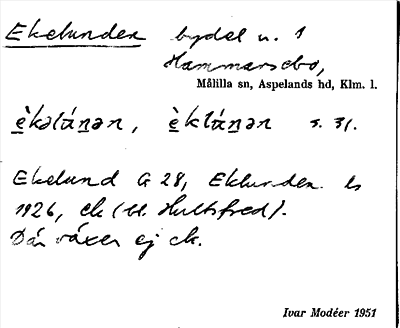 Ekelunden bydel u. 1
Hammarsebo,
Målilla sn, Aspelands hd, Klm. l.
è̱kəlάṉən, è̱klάṉən s. 31.
Ekelund G 28, Eklunden ls
1926, ek (bl. Hultsfred).
Där växer ej ek.
Ivar Modéer 1951